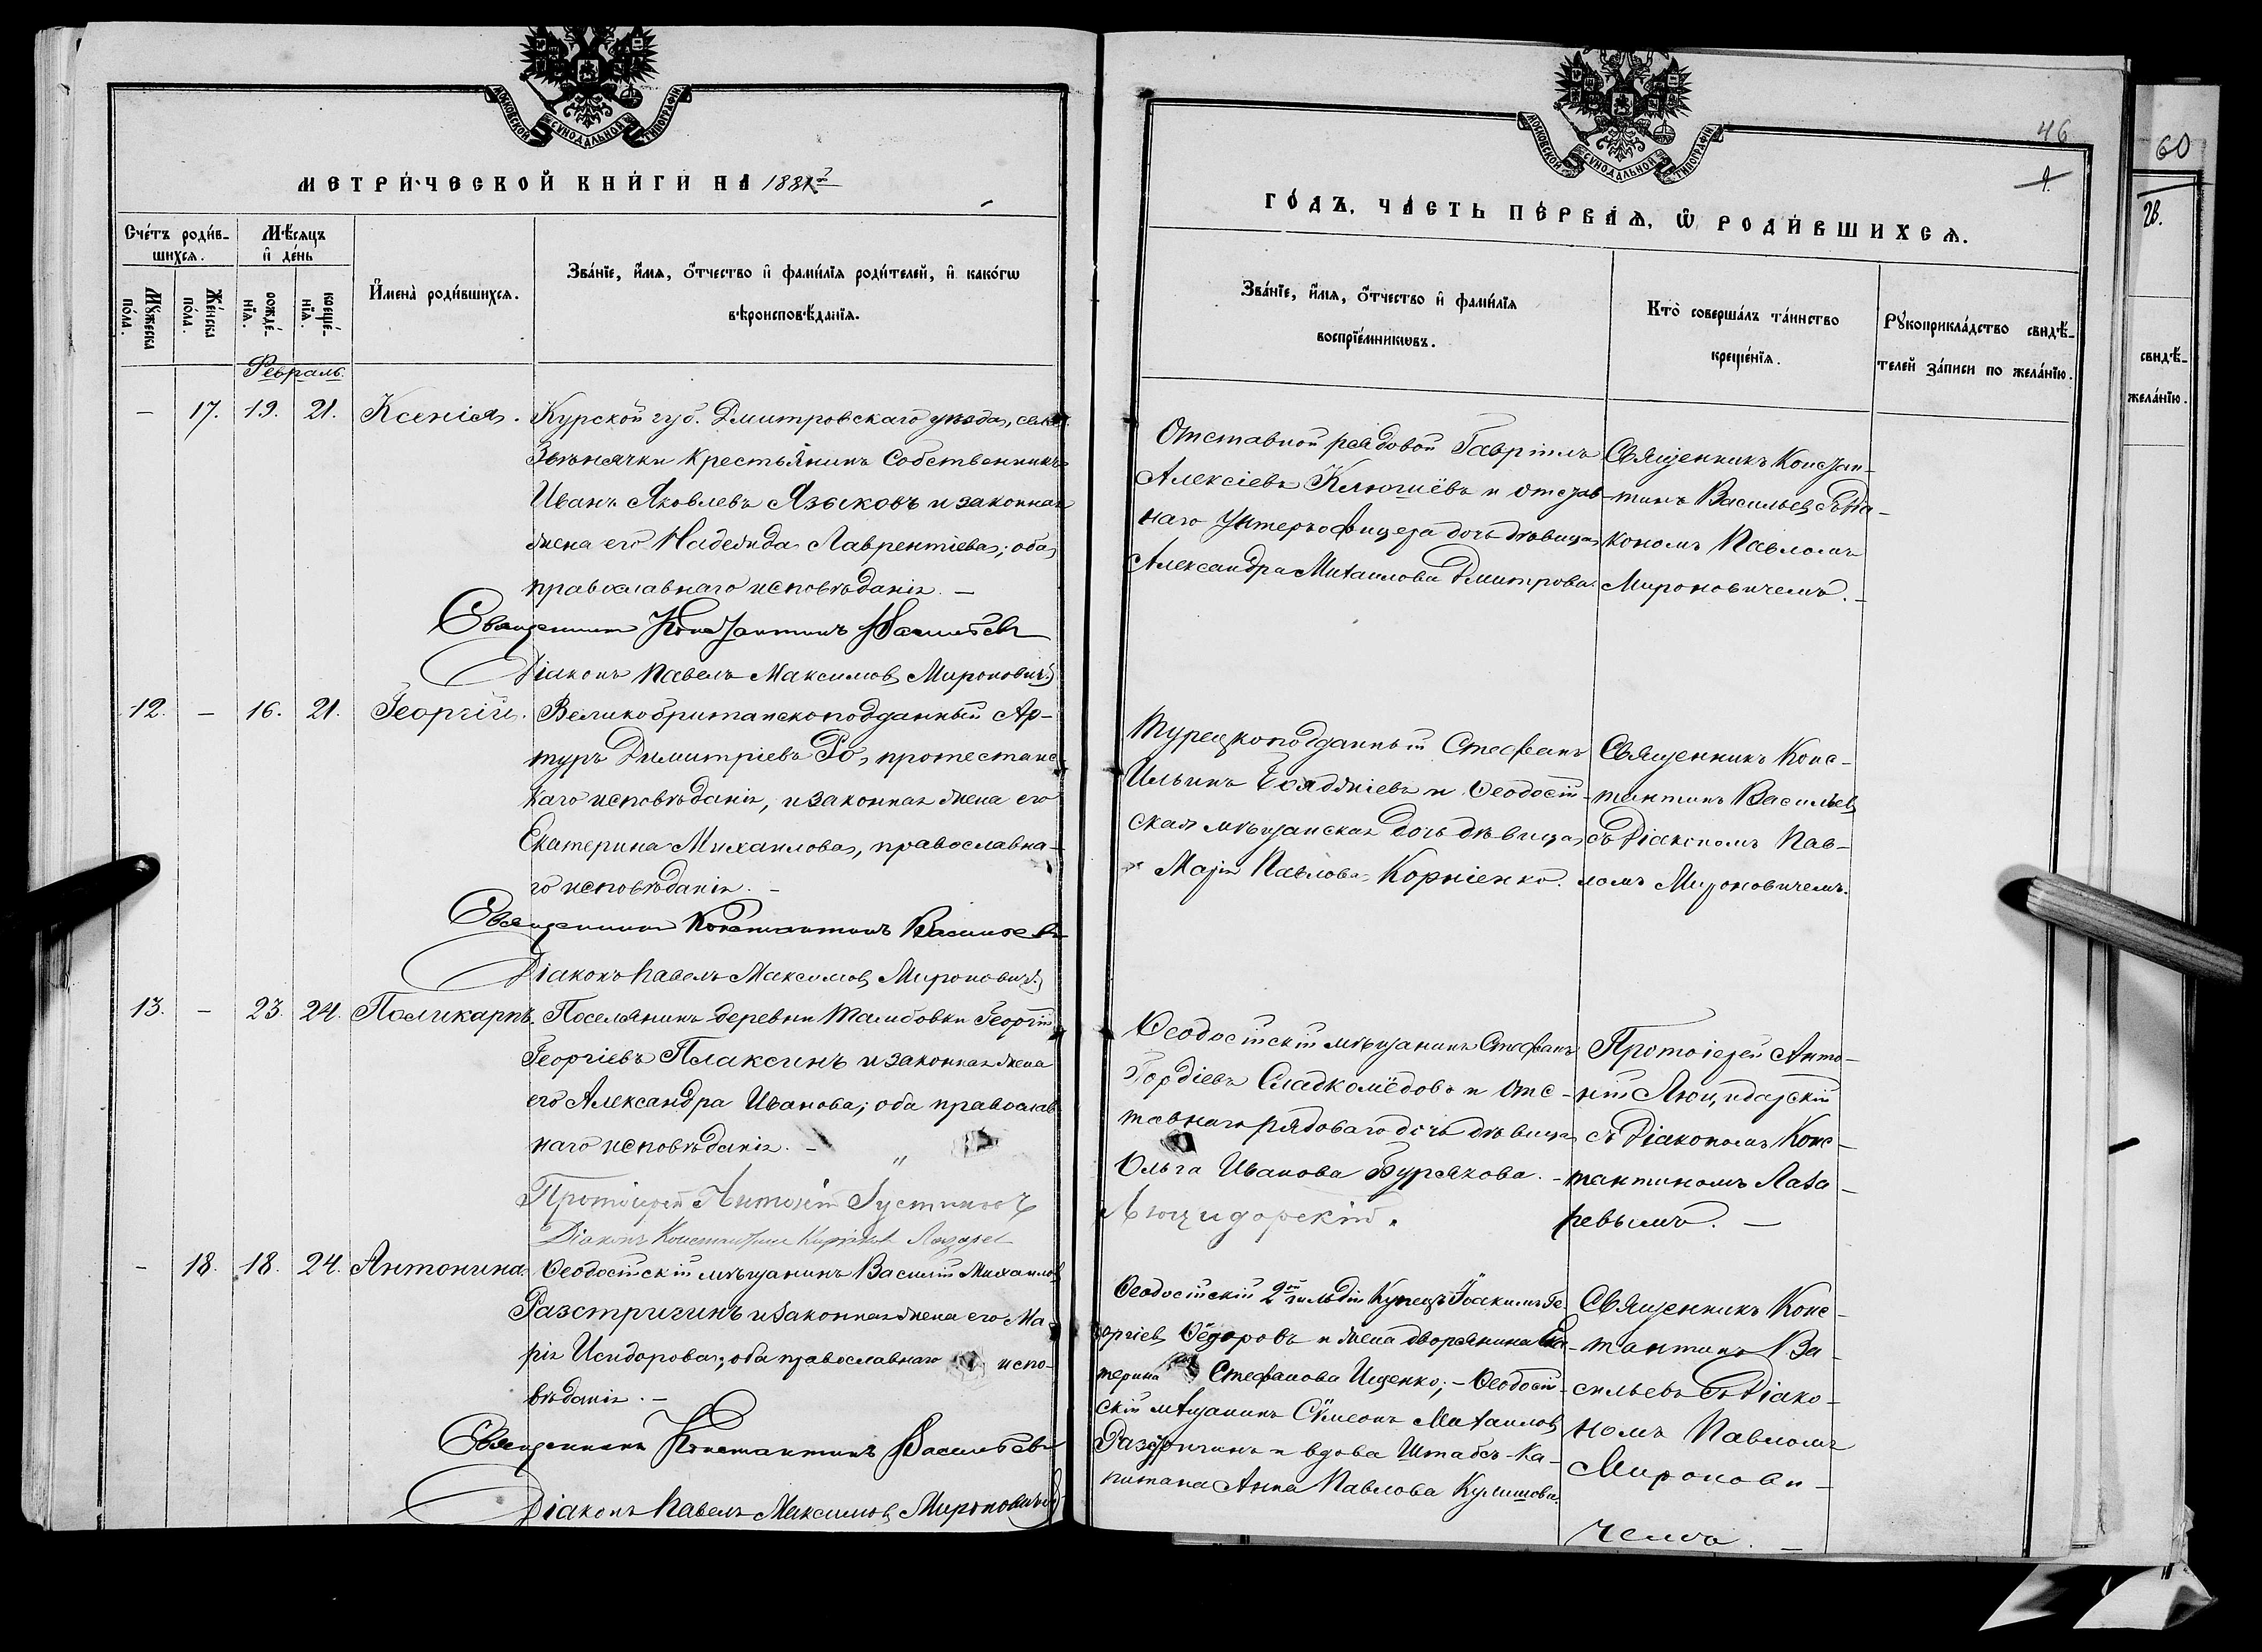 МОСКОВСКОЙ СѴНОДАЛЬНОЙ ТИПОГРАФІИ
МЕТРИ́ЧЕСКОЙ КНИ́ГИ НА 1882
Сче́тъ роди́в-
шихсѧ.
Мѣ́сѧцъ
и҆ де́нь
Мꙋ́жеска
по́ла.
Же́нска
по́ла.
рожде́-
нїѧ.
креще́-
нїѧ.
И҆мена̀ роди́вшихсѧ.
Зва́нїе, и҆́мѧ, ѻ҆́тчество и҆ фамилїѧ роди́телей, и҆ како́гѡ
вѣроисповѣ́данїѧ.
Февраль.
— 17. 19. 21. Ксенія. Курской губ. Дмитровскаго уѣзда, села
крестьянинъ Собственникъ
Иванъ Яковлевъ Языковъ и законная
жена его Надежда Лаврентіева; оба
православнаго исповѣданія. —
Священникъ Константинъ Васильевъ
Діаконъ Павелъ Максимовъ Мироновичъ
12. — 16. 21. Георгій. Великобританскоподданный Ар-
туръ Димитріевъ Ро, протестанс-
каго исповѣданія, и законная жена его
Екатерина Михаилова, православна-
го исповѣданія. —
Священникъ Константинъ Васильевъ
Діаконъ Павелъ Максимовъ Мироновичъ
13. — 23. 24. Поликарпъ. Поселянинъ деревни Тамбовки Георгій
Георгіевъ Плаксинъ и законная жена
его Александра Иванова; оба православ-
наго исповѣданія. —
Протоіерей Антоній Іустиновъ
Діаконъ Константинъ Лазарев
— 18. 18. 24. Антонина. Ѳеодосійскій мѣщанинъ Василій Михаиловъ
Разстригинъ и законная жена его Ма-
рія Исидорова; оба православнаго испо-
вѣданія. —
Священникъ Константинъ Васильевъ
Діаконъ Павелъ Максимовъ Мироновичъ
МОСКОВСКОЙ СѴНОДАЛЬНОЙ ТИПОГРАФІИ
46
ГО́ДЪ, ЧА́СТЬ ПЕ́РВАѦ, Ѡ҆ РОДИ́ВШИХСѦ.
Зва́нїе, и҆́мѧ, ѻ҆́тчество и҆ фами́лїѧ
воспрїе́мникѡвъ.
Кто̀ соверша́лъ та́инство
креще́нїѧ.
Рꙋкоприкла́дство свидѣ́-
телей за́писи по жела́нїю.
Отставной рядовой Гавріилъ
Алексіевъ Клюгиёвъ и отстав-
наго Унтеръ офицера дочь дѣвица
Александра Михаилова Дмитрова.
Священникъ Констан-
тинъ Васильевъ съ Діа-
кономъ Павломъ
Мироновичемъ. —
Турецкоподданный Стефанъ
Ильинъ Бояджіевъ и Ѳеодосій-
ская мѣщанская дочь дѣвица
Марія Павлова Корніенко.
Священникъ Конс-
тантинъ Васильевъ
съ Діакономъ Пав-
ломъ Мироновичемъ.
Ѳеодосійскій мѣщанинъ Стефанъ
Гордіевъ Сладкомёдовъ и Отс-
тавнаго рядоваго дочь дѣвица
Ольга Иванова Бурсакова. —
Люцидарскій.
Протоіерей Анто-
ній Люцидарскій
съ Діакономъ Конс-
тантиномъ Лаза-
ревымъ. —
Ѳеодосійскій 2й гильдіи Купецъ Іоакимъ Ге-
оргіевъ Ѳёдоровъ и жена дворянина Ека-
терина Стефанова Ищенко; — Ѳеодосій-
скій мѣщанинъ Сѵмеонъ Михаиловъ
Разстригинъ и вдова Штабсъ-Ка-
питана Анна Павлова Кулишова.
Священникъ Конс-
тантинъ Ва-
сильевъ съ Діако-
номъ Павломъ
Миронови-
чемъ. —
60
28.
свидѣ́-
жела́нїю.